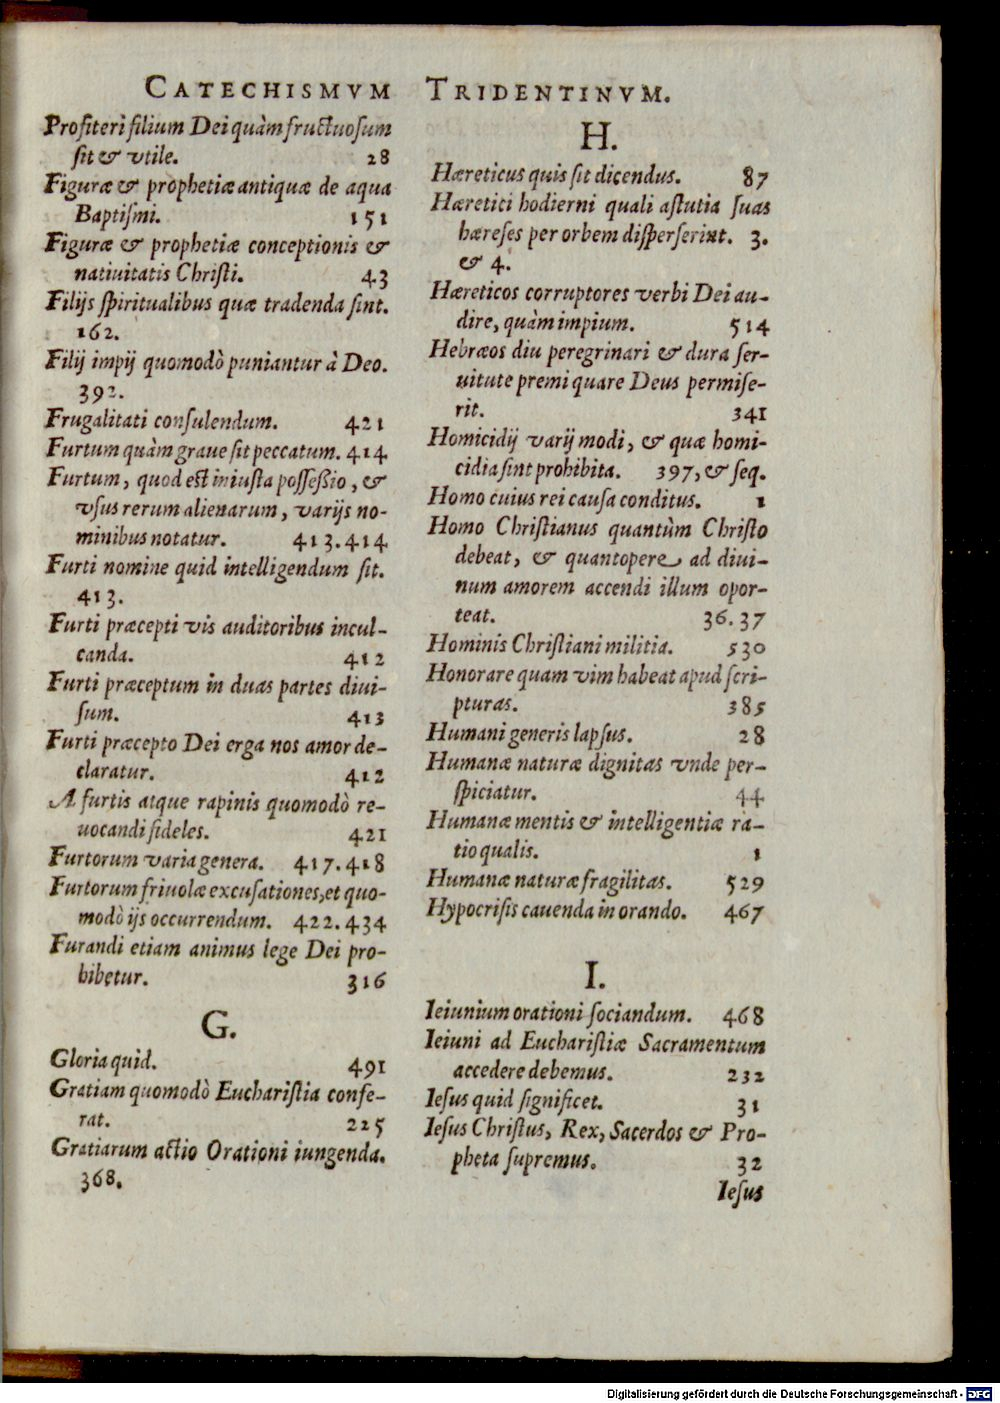 CATECHISMVM TRIDENTINVM.
Profiteri filium Dei quàm fructuosum
sit & vtile. 28
Figuræ & prophetiæ antiquæ de aqua
Baptismi. 151
Figuræ & prophetiæ conceptionis &
natiuitatis Christi. 43
Filijs spiritualibus quæ tradenda sint.
162.
Filij impij quomodò puniantur à Deo.
392.
Frugalitati consulendum. 421
Furtum quàm graue sit peccatum. 414
Furtum, quod est iniusta possessio, &
vsus rerum alienarum, varijs no-
minibus notatur. 413.414
Furti nomine quid intelligendum sit.
413.
Furti præcepti vis auditoribus incul-
canda. 412
Furti præceptum in duas partes diui-
sum. 413
Furti præcepto Dei erga nos amor de-
claratur. 412
A furtis atque rapinis quomodò re-
uocandi fideles. 421
Furtorum varia genera. 417.418
Furtorum friuolæ excusationes, et quo-
modò ijs occurrendum. 422.434
Furandi etiam animus lege Dei pro-
hibetur. 316
G.
Gloria quid. 491
Gratiam quomodò Eucharistia confe-
rat. 225
Gratiarum actio Orationi iungenda.
368.
H.
Hæreticus quis sit dicendus. 87
Hæretici hodierni quali astutia suas
hæreses per orbem disperserint. 3.
& 4.
Hæreticos corruptores verbi Dei au-
dire, quàm impium. 514
Hebræos diu peregrinari & dura ser-
uitute premi quare Deus permise-
rit. 341
Homicidij varij modi, & quæ homi-
cidia sint prohibita. 397, & seq.
Homo cuius rei causa conditus. 1
Homo Christianus quantùm Christo
debeat, & quantopere ad diui-
num amorem accendi illum opor-
teat. 36.37
Hominis Christiani militia. 530
Honorare quam vim habeat apud scri-
pturas. 385
Humani generis lapsus. 28
Humanæ naturæ dignitas vnde per-
spiciatur. 44
Humanæ mentis & intelligentiæ ra-
tio qualis. 1
Humanæ naturæ fragilitas. 529
Hypocrisis cauenda in orando. 467
I.
Ieiunium orationi sociandum. 468
Ieiuni ad Eucharistiæ Sacramentum
accedere debemus. 232
Iesus quid significet. 31
Iesus Christus, Rex, Sacerdos & Pro-
pheta supremus. 32
Iesus
Digitalisierung gefördert durch die Deutsche Forschungsgemeinschaft - DFG